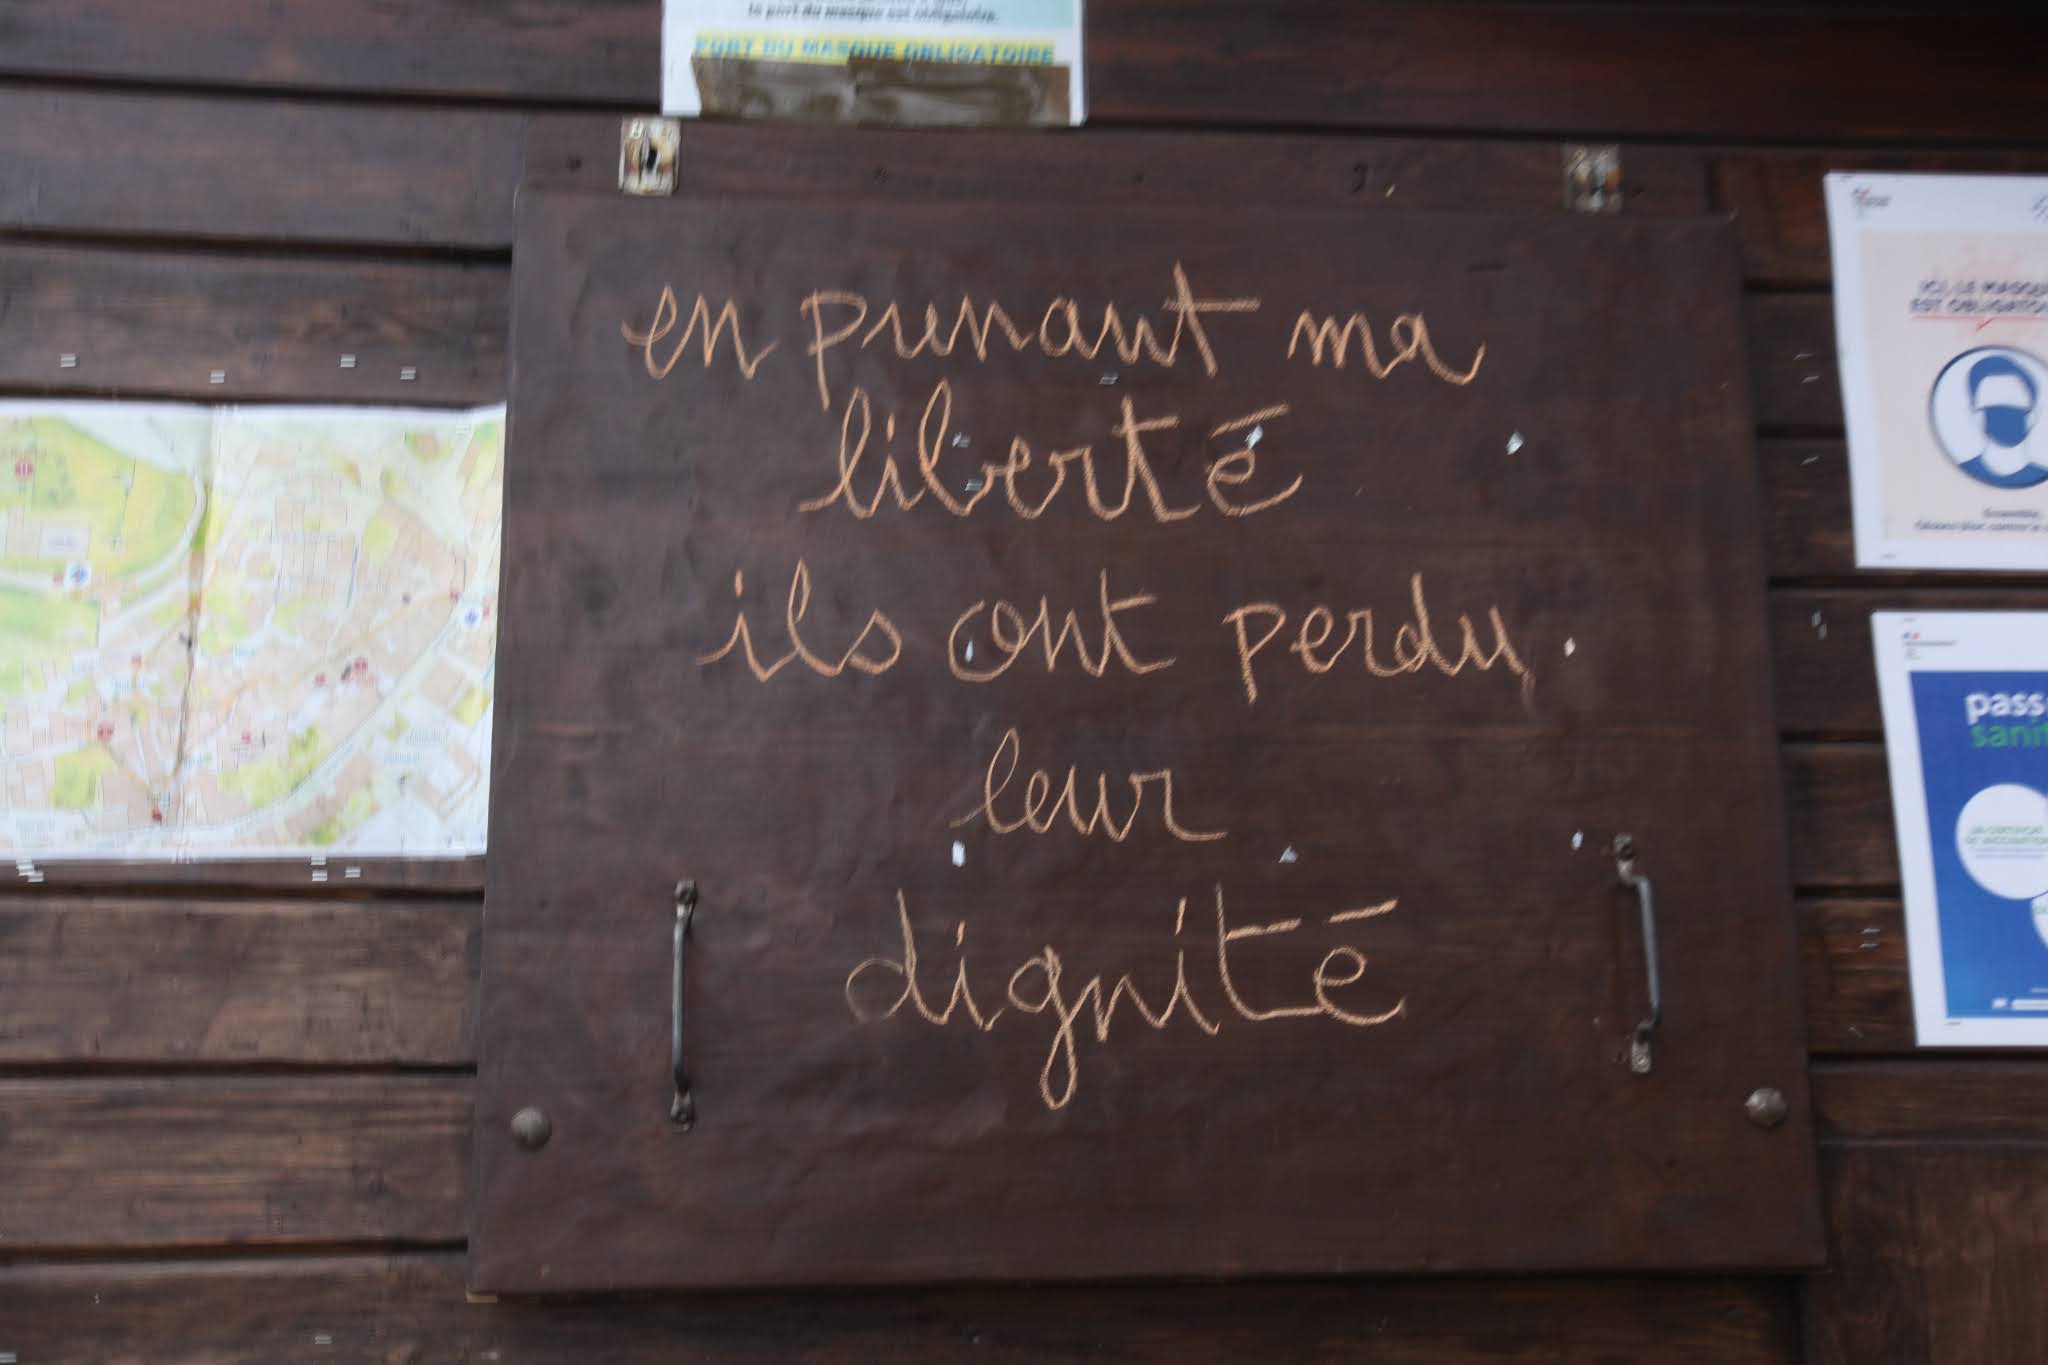 le port du masque est obligatoire.
PORT DU MASQUE OBLIGATOIRE
en prenant ma
liberté
ils ont perdu
leur
dignité
ICI, LE MASQU
EST OBLIGATO
Ensemble,
passe
sanit
UN CERTIFICAT
DE VACCINATION